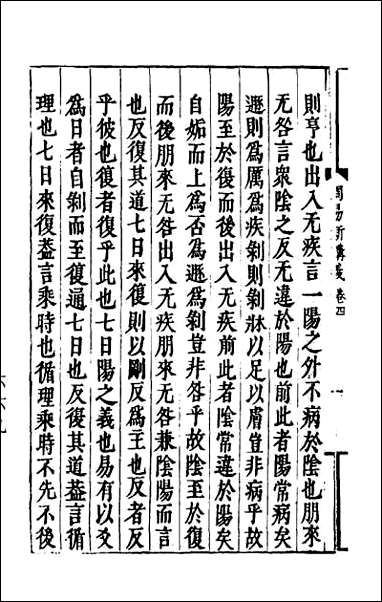 周易新講義 卷四
則亨也出入无疾言一陽之外不病於陰也朋來
无咎言衆陰之反无違於陽也前此者陽常病矣
遯則爲厲爲疾剝則剝牀以足以膚豈非病乎故
陽至於復而後出入无疾前此者陰常違於陽矣
自姤而上爲否爲遯爲剝豈非咎乎故陰至於復
而後朋來无咎出入无疾朋來无咎兼陰陽而言
也反復其道七日來復則以剛反爲主也反者反
乎彼也復者復乎此也七日陽之義也易有以爻
爲日者自剝而至復遍七日也反復其道蓋言循
理也七日來復蓋言乘時也循理乘時不先不後